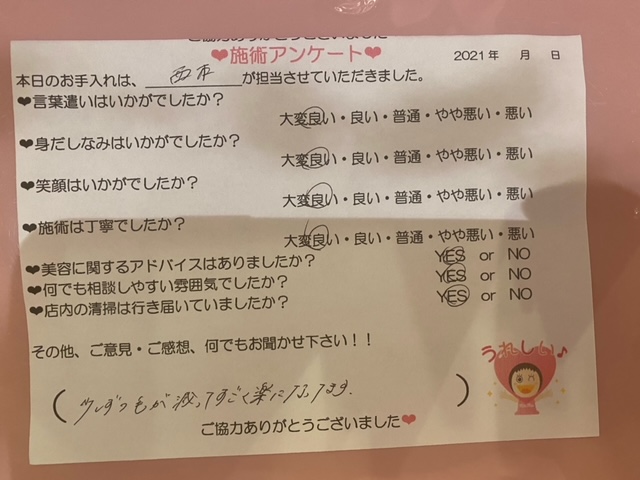 ご協力ありがとうございました
❤施術アンケート❤
2021年　月　日
本日のお手入れは、西本が担当させていただきました。
❤言葉遣いはいかがでしたか？
大変良い・良い・普通・やや悪い・悪い
❤身だしなみはいかがでしたか？
大変良い・良い・普通・やや悪い・悪い
❤笑顔はいかがでしたか？
大変良い・良い・普通・やや悪い・悪い
❤施術は丁寧でしたか？
大変良い・良い・普通・やや悪い・悪い
❤美容に関するアドバイスはありましたか？ YES or NO
❤何でも相談しやすい雰囲気でしたか？ YES or NO
❤店内の清掃は行き届いていましたか？ YES or NO
その他、ご意見・ご感想、何でもお聞かせ下さい！！
うれしい♪
(少しずつ毛が減ってすごく楽になってます。)
ご協力ありがとうございました❤